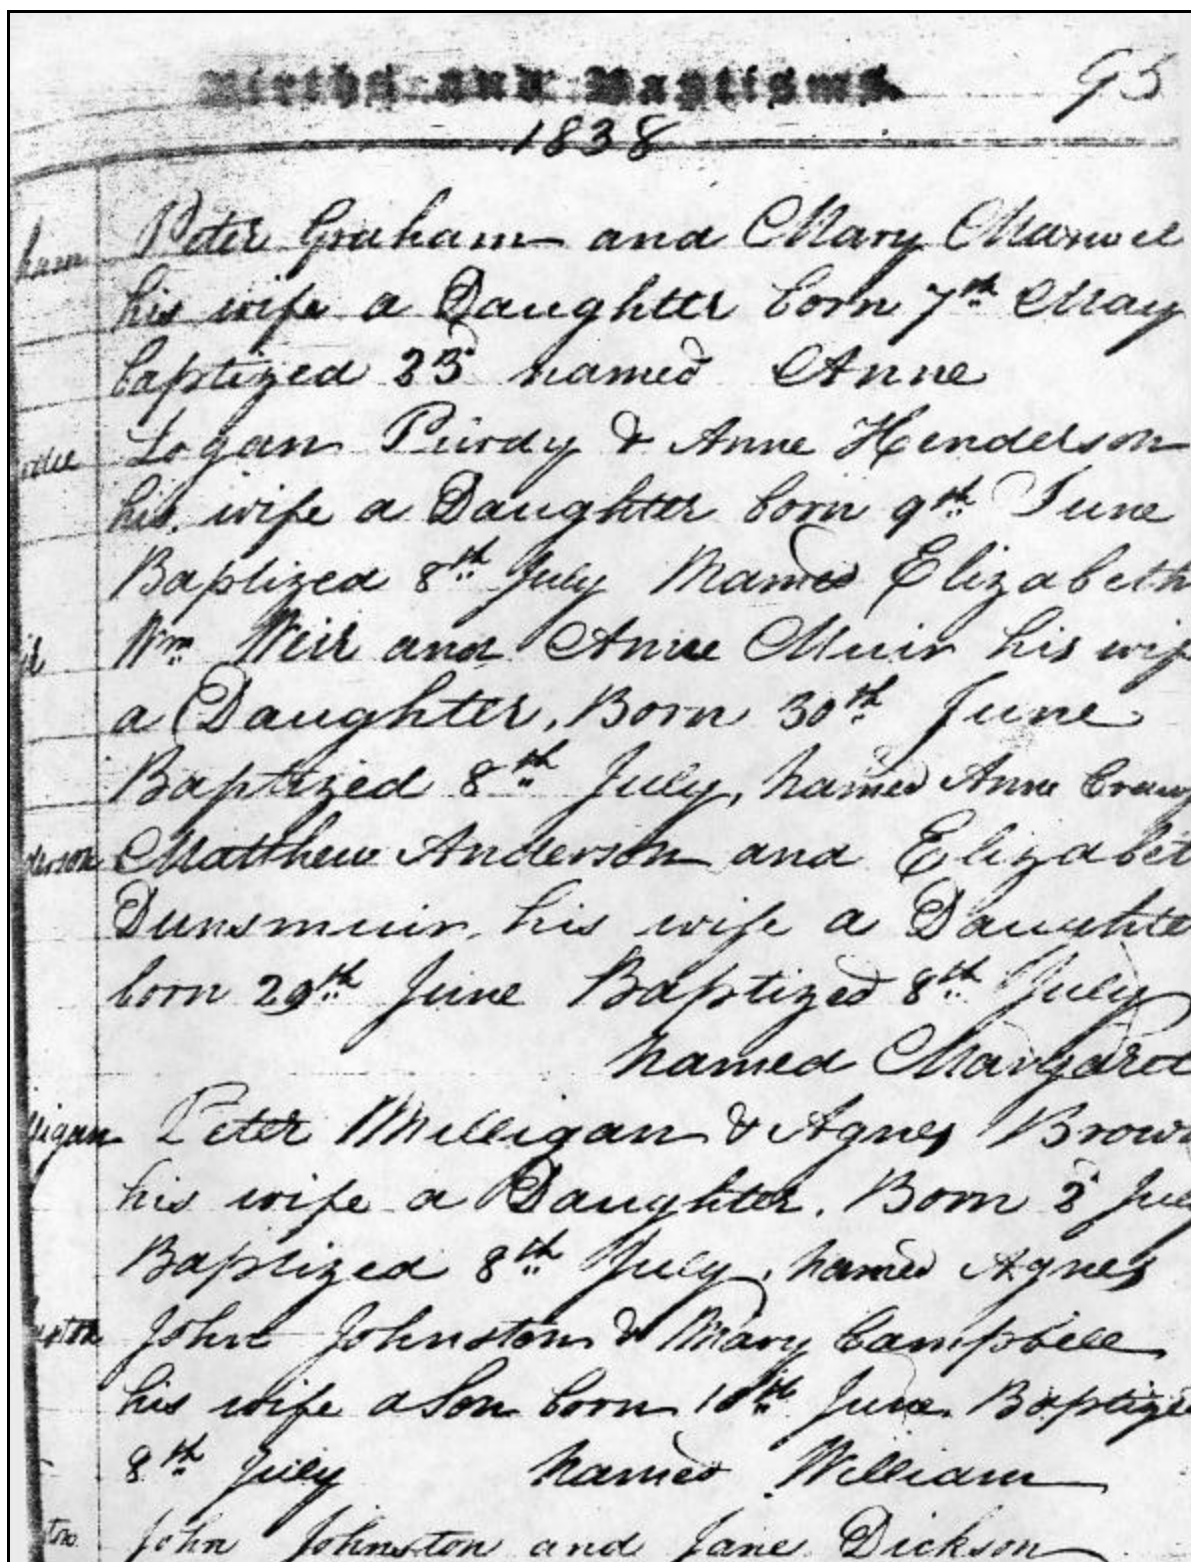 Births and Baptisms. 95
1838
ham Peter Graham and Mary Maxwell
his wife a Daughter born 7th May
baptized 23d named Anne
Logan Purdy & Anne Henderson
his wife a Daughter born 9th June
Baptized 8th July Named Elizabeth
Wm Weir and Anne Muir his wife
a Daughter, Born 30th June
Baptized 8th July, named Anne
derson Matthew Anderson and Elizabet
Dunsmuir, his wife a Daughte
born 29th June Baptized 8th July
named Margaret
lligan Peter Milligan & Agnes Brown
his wife a Daughter. Born 2d July
Baptized 8th July, named Agnes
John Johnston & Mary Campbell
his wife a Son born 10th June. Baptize
8th July named William
ton John Johnston and Jane Dickson